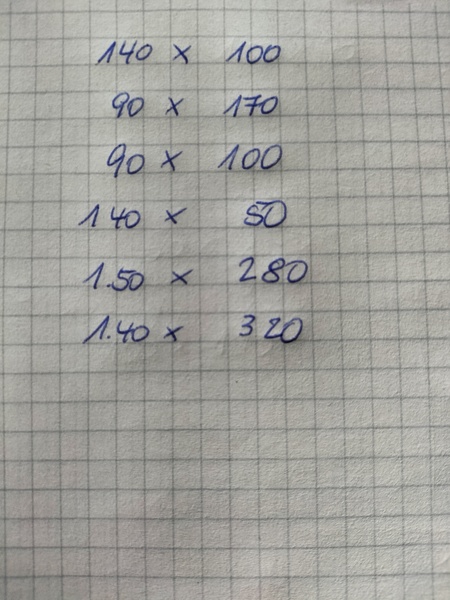 140 x 100
90 x 170
90 x 100
140 x 50
1.50 x 280
1.40 x 320